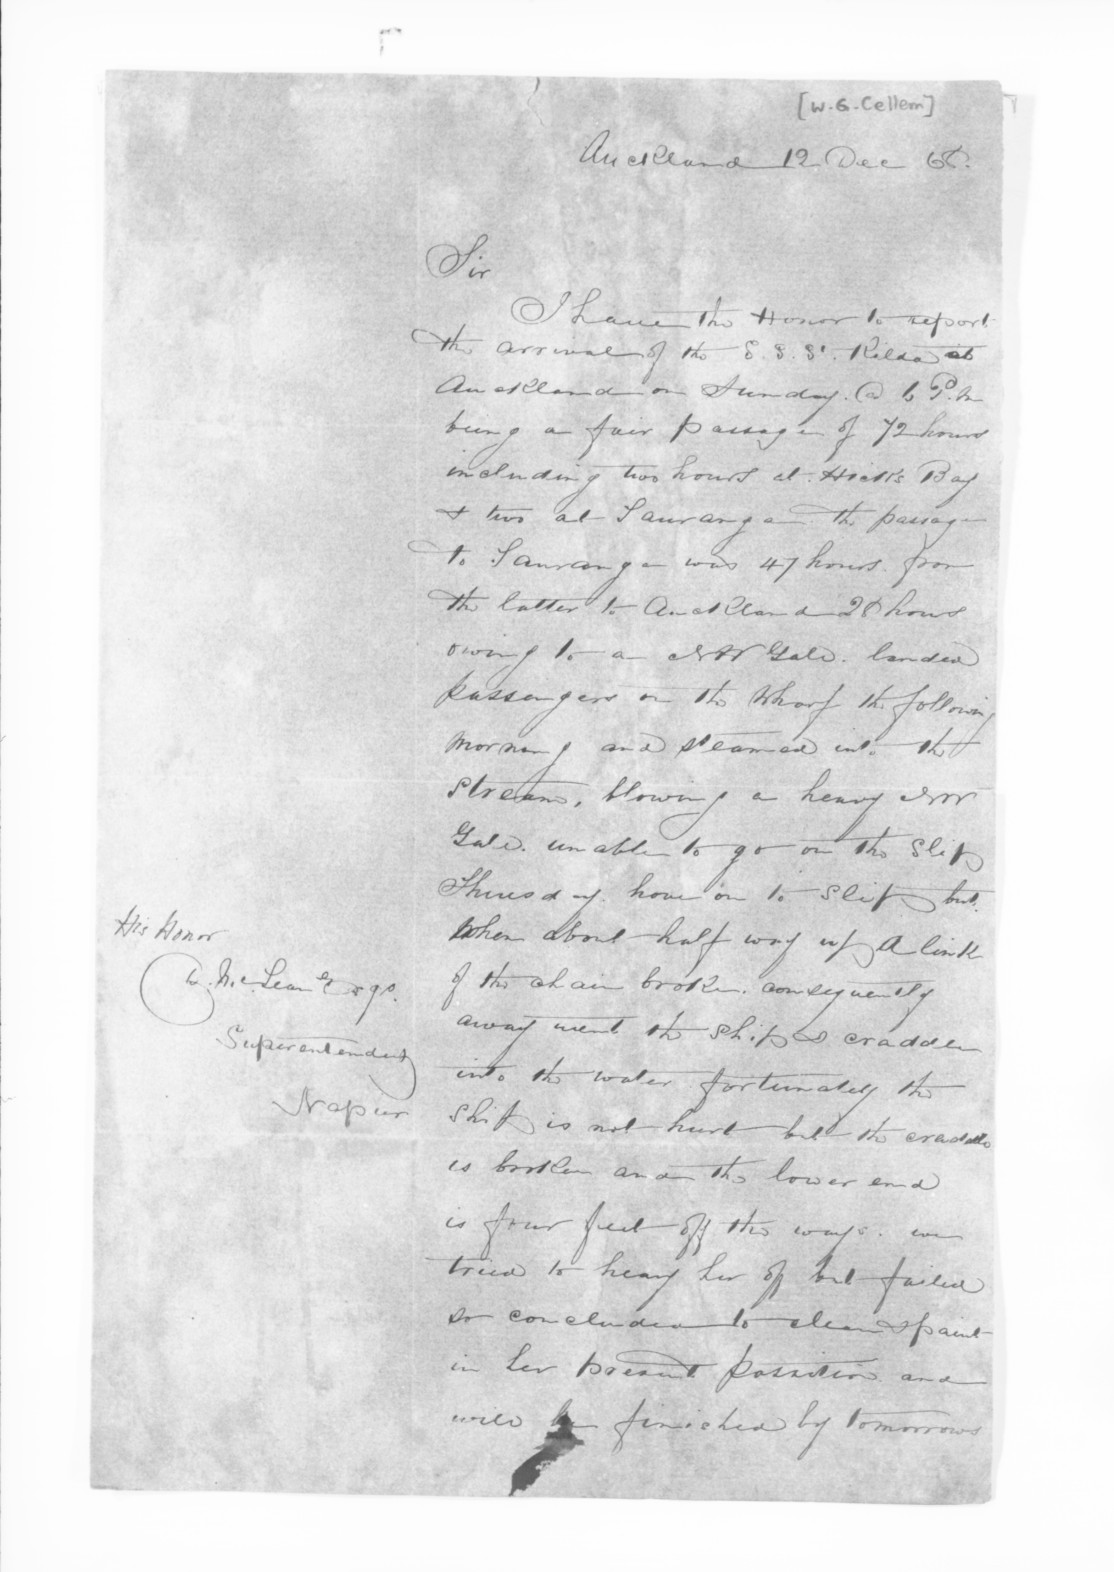 [W.G. Cellem]
Auckland 12 Dec 68.
Sir
I have the Honor to report
the arrival of the S.S. St. Kilda at
Auckland on Sunday. @ 6 P.M
being a fair passage of 72 hours
including two hours at Hicks Bay
& two at Tauranga the passage
to Tauranga was 47 hours. from
the latter to Auckland 28 hours
owing to a NW Gale. landed
passengers on the Wharf the following
Morning and steamed into the
stream, blowing a heavy NW
Gale. unable to go on the slip
Thursday hove on to slip but
When about half way up A link
of the chain broke. consequently
away went the ship & craddle
into the water fortunately the
ship is not hurt but the craddle
is broken and the lower end
is four feet off the ways. we
tried to heavy her off but failed
so concluded to clean & paint
in her present possition and
will be finished by tomorrows
His Honor
D. McLean Esqr.
Superentendent
Napier